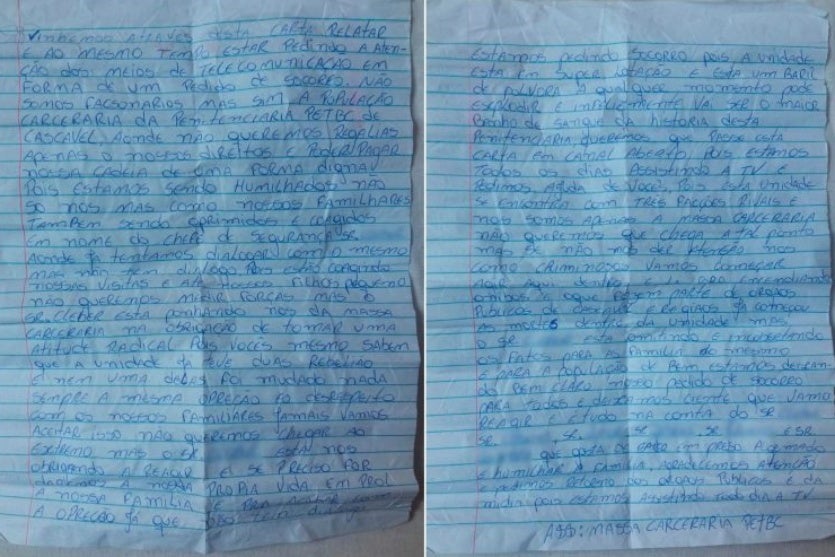 VINHEMOS ATRAVES DESTA CARTA RELATAR
E AO MESMO TEMPO ESTAR PEDINDO A ATEN-
ÇÃO DOS MEIOS DE TELECOMUNICAÇÃO EM
FORMA DE UM PEDIDO DE SOCORRO. NÃO
SOMOS FACSONARIOS MAS SIM A POPULAÇÃO
CARCERARIA DA PENITENCIARIA PETBC DE
CASCAVEL, AONDE NÃO QUEREMOS REGALIAS
APENAS O NOSSOS DIREITOS E PODER PAGAR
NOSSA CADEIA DE UMA FORMA DIGNA
POIS ESTAMOS SENDO HUMILHADOS NÃO
SO NOS MAS COMO NOSSOS FAMILHARES
TAMBEM SENDO OPRIMIDOS E COAGIDOS
EM NOME DO CHEFE DE SEGURANÇA SR.
AONDE JA TENTAMOS DIALOGAR COM O MESMO
MAS NÃO TEM DIALOGO POIS ESTÃO COAGINDO
NOSSAS VISITAS E ATE NOSSOS FILHOS PEQUENO
NÃO QUEREMOS MEDIR FORÇAS MAS O
SR. CLEBER ESTA PONHANDO NOS DA MASSA
CARCERARIA NA OBRIGAÇÃO DE TOMAR UMA
ATITUDE RADICAL POIS VOCÊS MESMO SABEM
QUE A UNIDADE JA TEVE DUAS REBELIÃO
E NEM UMA DELAS FOI MUDADO NADA
SEMPRE A MESMA OPREÇÃO E O DESRESPEITO
COM OS NOSSOS FAMILIARES JAMAIS VAMOS
ACEITAR ISSO NÃO QUEREMOS CHEGAR AO
EXTREMO MAS O SR. ESTA NOS
OBRIGANDO A REAGIR E SE PRECISO FOR
DAREMOS A NOSSA PROPIA VIDA EM PROL
A NOSSA FAMILIA E PRA ACABAR COM
A OPREÇÃO JA QUE NÃO TEM DIALOGO
ESTAMOS PEDINDO SOCORRO POIS A UNIDADE
ESTA EM SUPER LOTAÇÃO E ESTA UM BARIL
DE PULVORA A QUALQUER MOMENTO PODE
EXPLODIR E INFELIZMENTE VAI SER O MAIOR
BANHO DE SANGUE DA HISTORIA DESTA
PENITENCIARIA, QUEREMOS QUE PASSE ESTA
CARTA EM CANAL ABERTO POIS ESTAMOS
TODOS OS DIAS ASSISTINDO A TV E
PEDIMOS AJUDA DE VOCES, POIS ESTA UNIDADE
SE ENCONTRA COM TRES FACÇÕES RIVAIS E
NOS SOMOS APENAS A MASSA CARCERARIA
NÃO QUEREMOS QUE CHEGA A TAL PONTO
MAS SE NÃO NOS DER ATENÇÃO NOS
COMO CRIMINOSOS VAMOS COMEÇAR
AGIR AQUI DENTRO E LA FORA INCENDIANDO
ONIBUS E OQUE FAZEM PARTE DE ORGÃOS
PUBLICOS DE CASCAVEL E REGIÃO JA COMEÇOU
AS MORTES DENTRO DA UNIDADE MAS
O SR ESTA OMITINDO E
OS FATOS PARA AS FAMILIA DO MESMO
E PARA A POPULAÇÃO DE BEM, ESTAMOS DEIXAN-
DO BEM CLARO NOSSO PEDIDO DE SOCORRO
PARA TODOS E DEIXAMOS CIENTE QUE VAMO
REAGIR E É TUDO NA CONTA DO SR
SR. SR. SR E SR.
QUE GOSTA DE BATE EM PRESO ALGEMADO
E HUMILHAR A FAMILIA, AGRADECEMOS ATENÇÃO
E PEDIMOS RETORNO DOS ORGÃOS PUBLICOS E DA
MIDIA POIS ESTAMOS ASSISTINDO TODO DIA A TV
ASS: MASSA CARCERARIA PETBC